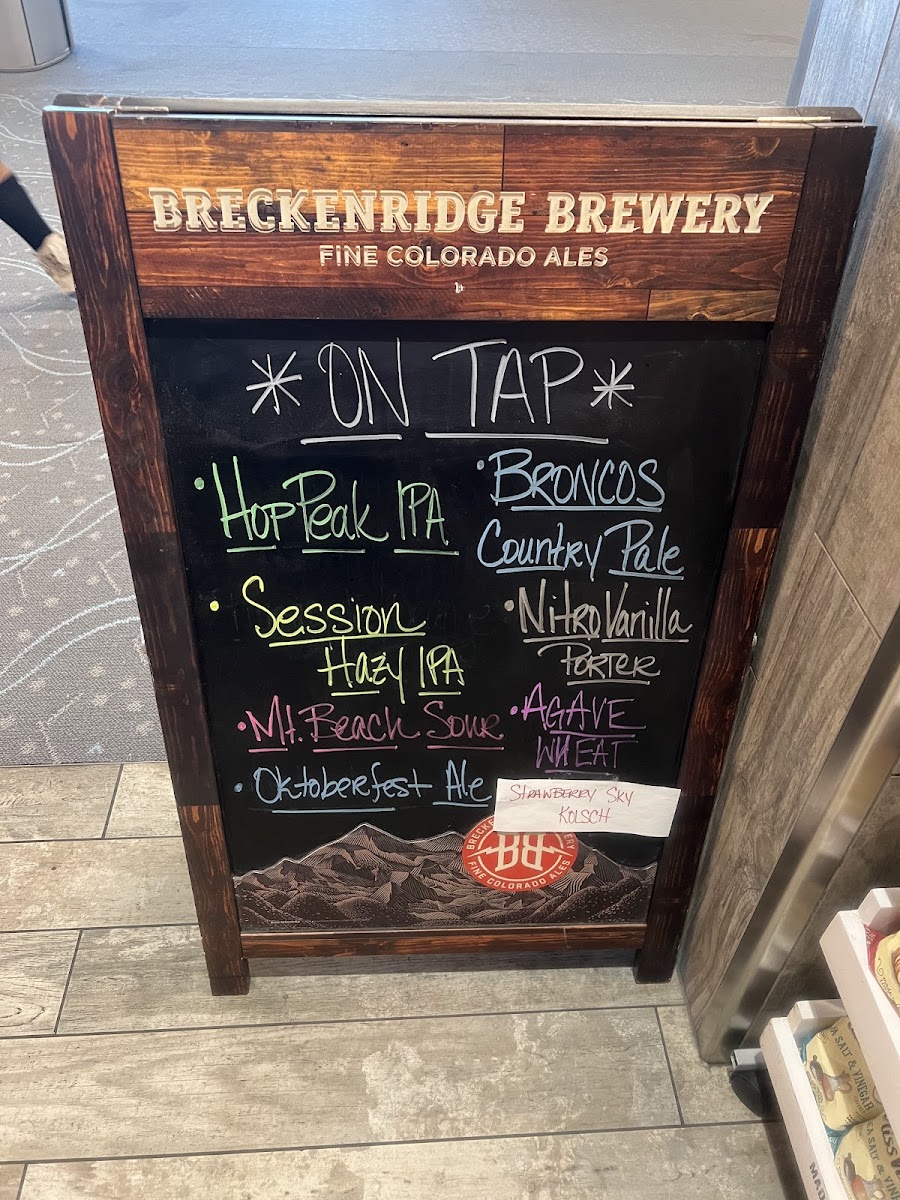 BRECKENRIDGE BREWERY
FINE COLORADO ALES
* ON TAP *
• Hop Peak IPA
• Session
Hazy IPA
• Mt. Beach Sour
• Oktoberfest Ale
• BRONCOS
Country Pale
• Nitro Vanilla
PORTER
• AGAVE
WHEAT
STRAWBERRY SKY
KOLSCH
BRECKENRIDGE BREWERY
BB
FINE COLORADO ALES
SEA SALT & VINEGAR
SEA SALT & VINEGAR